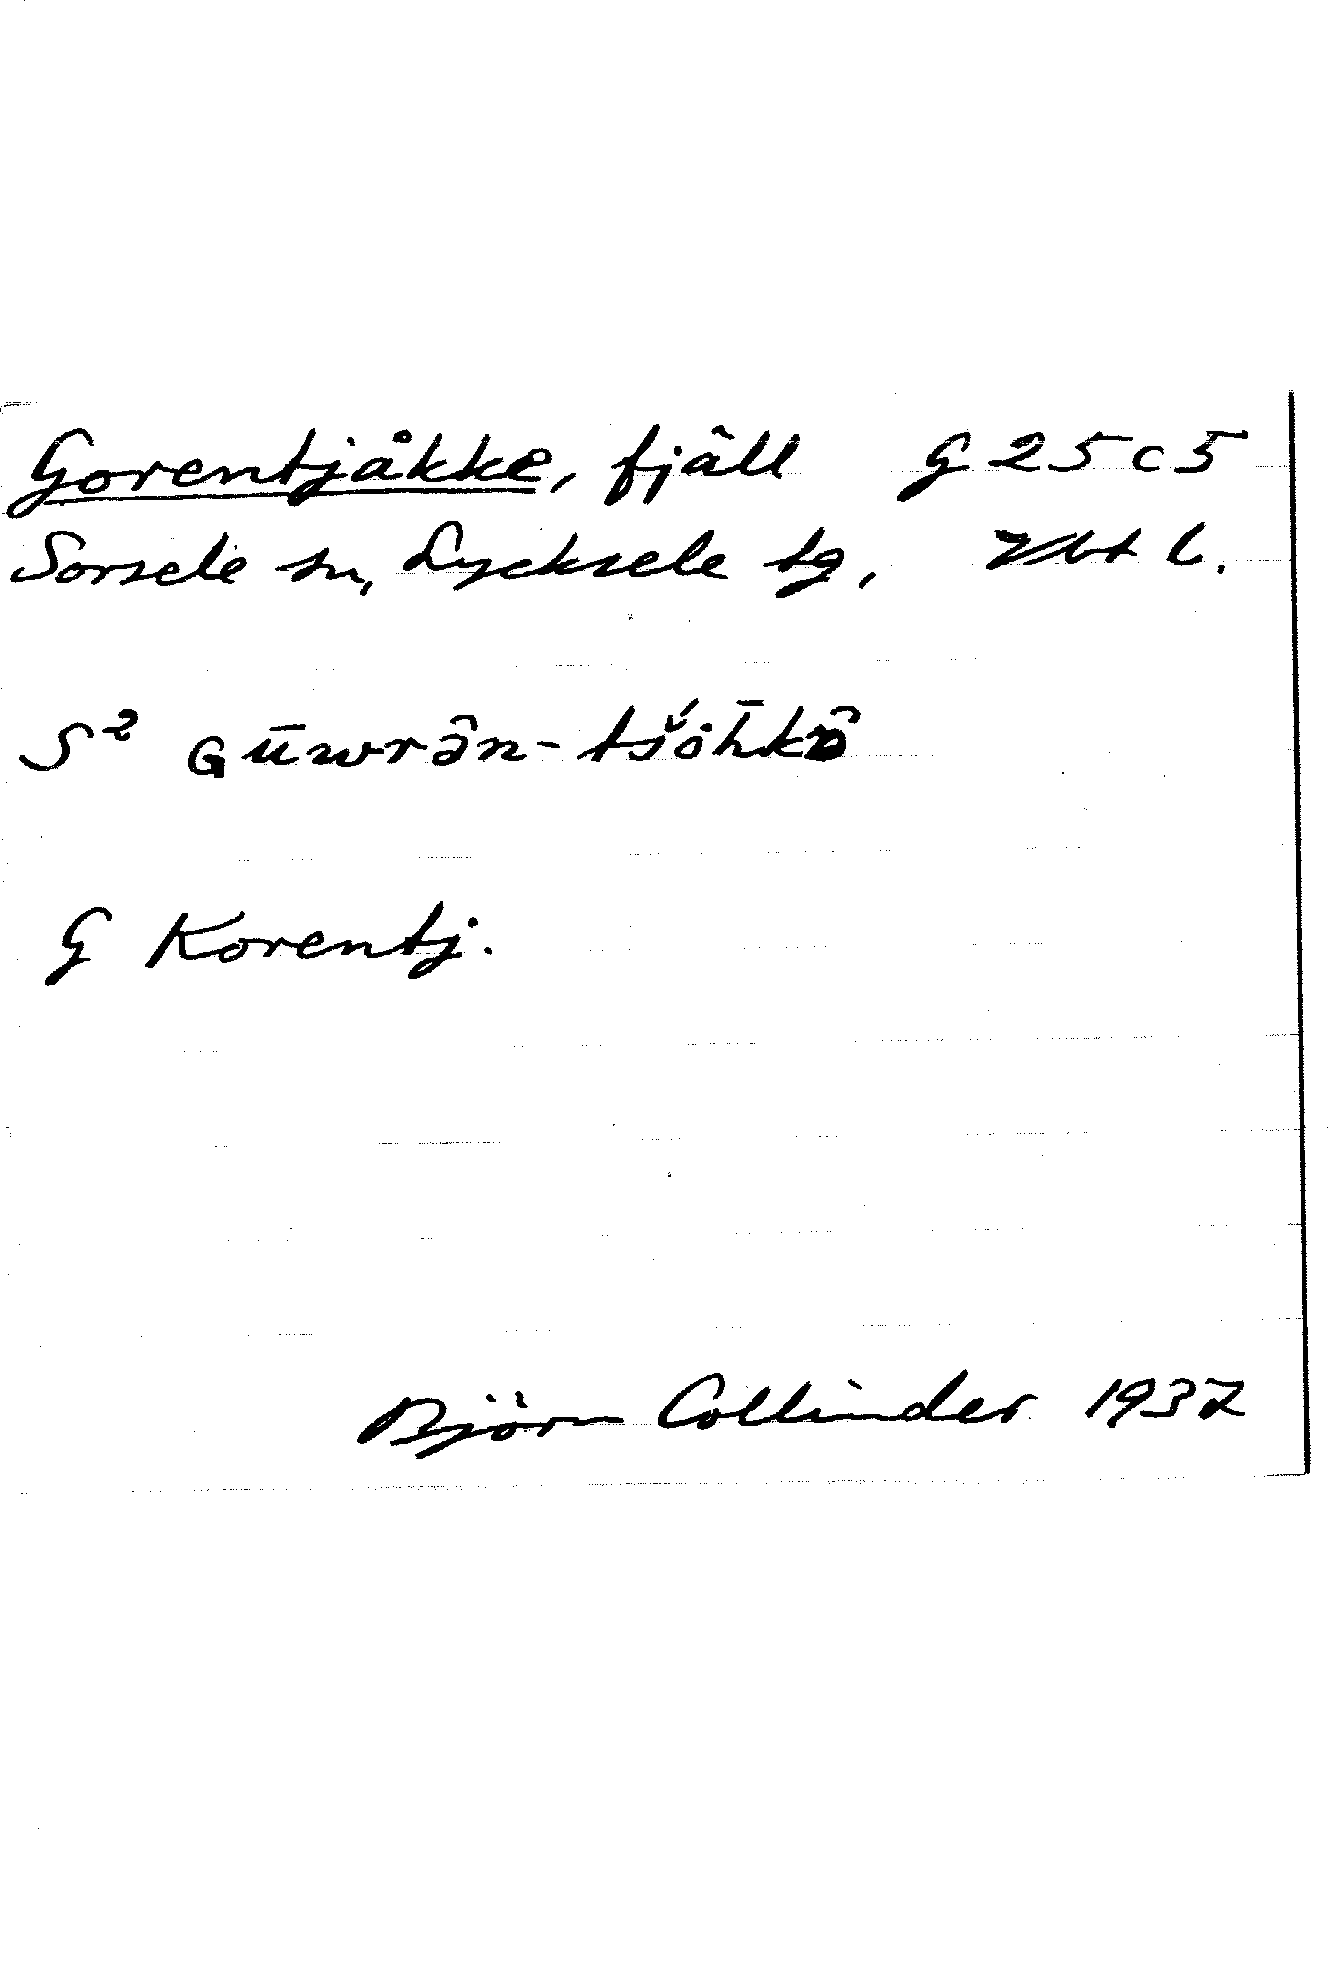 Gorentjåkke, fjäll G 25 c 5
Sorsele sn, Lycksele tg, Vbt l.
S²
G Korentj.
Björn Collinder 1937